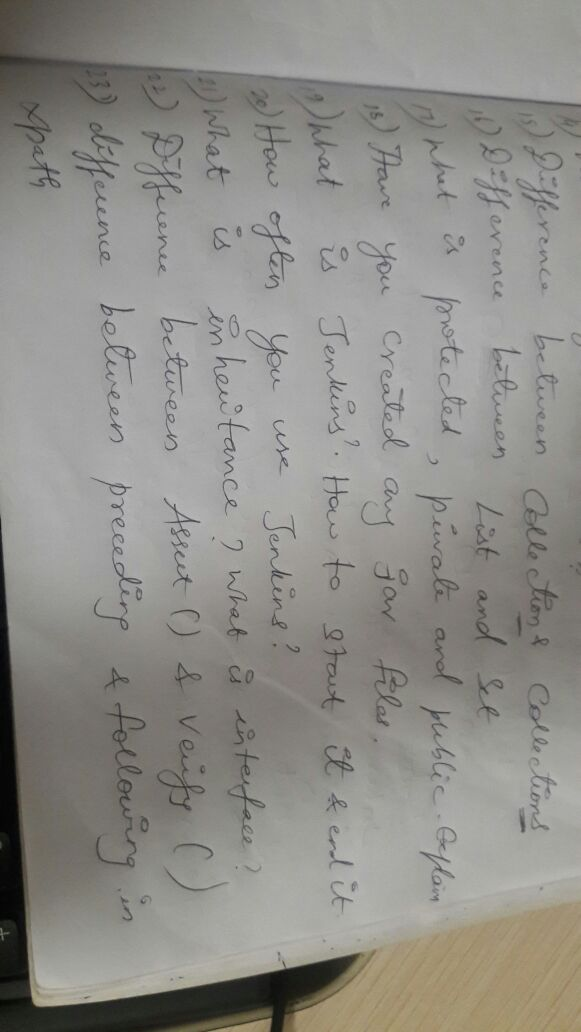 15) Difference between Collection & Collections
16) Difference between List and Set
17) What is protected, private and public. Explain
18) Have you created any jar files.
19) What is Jenkins?. How to start it & end it
20) How often you use Jenkins?
21) What is inheritance? What is interface?
22) Difference between Assert() & Verify()
23) difference between preceding & following in
Xpath